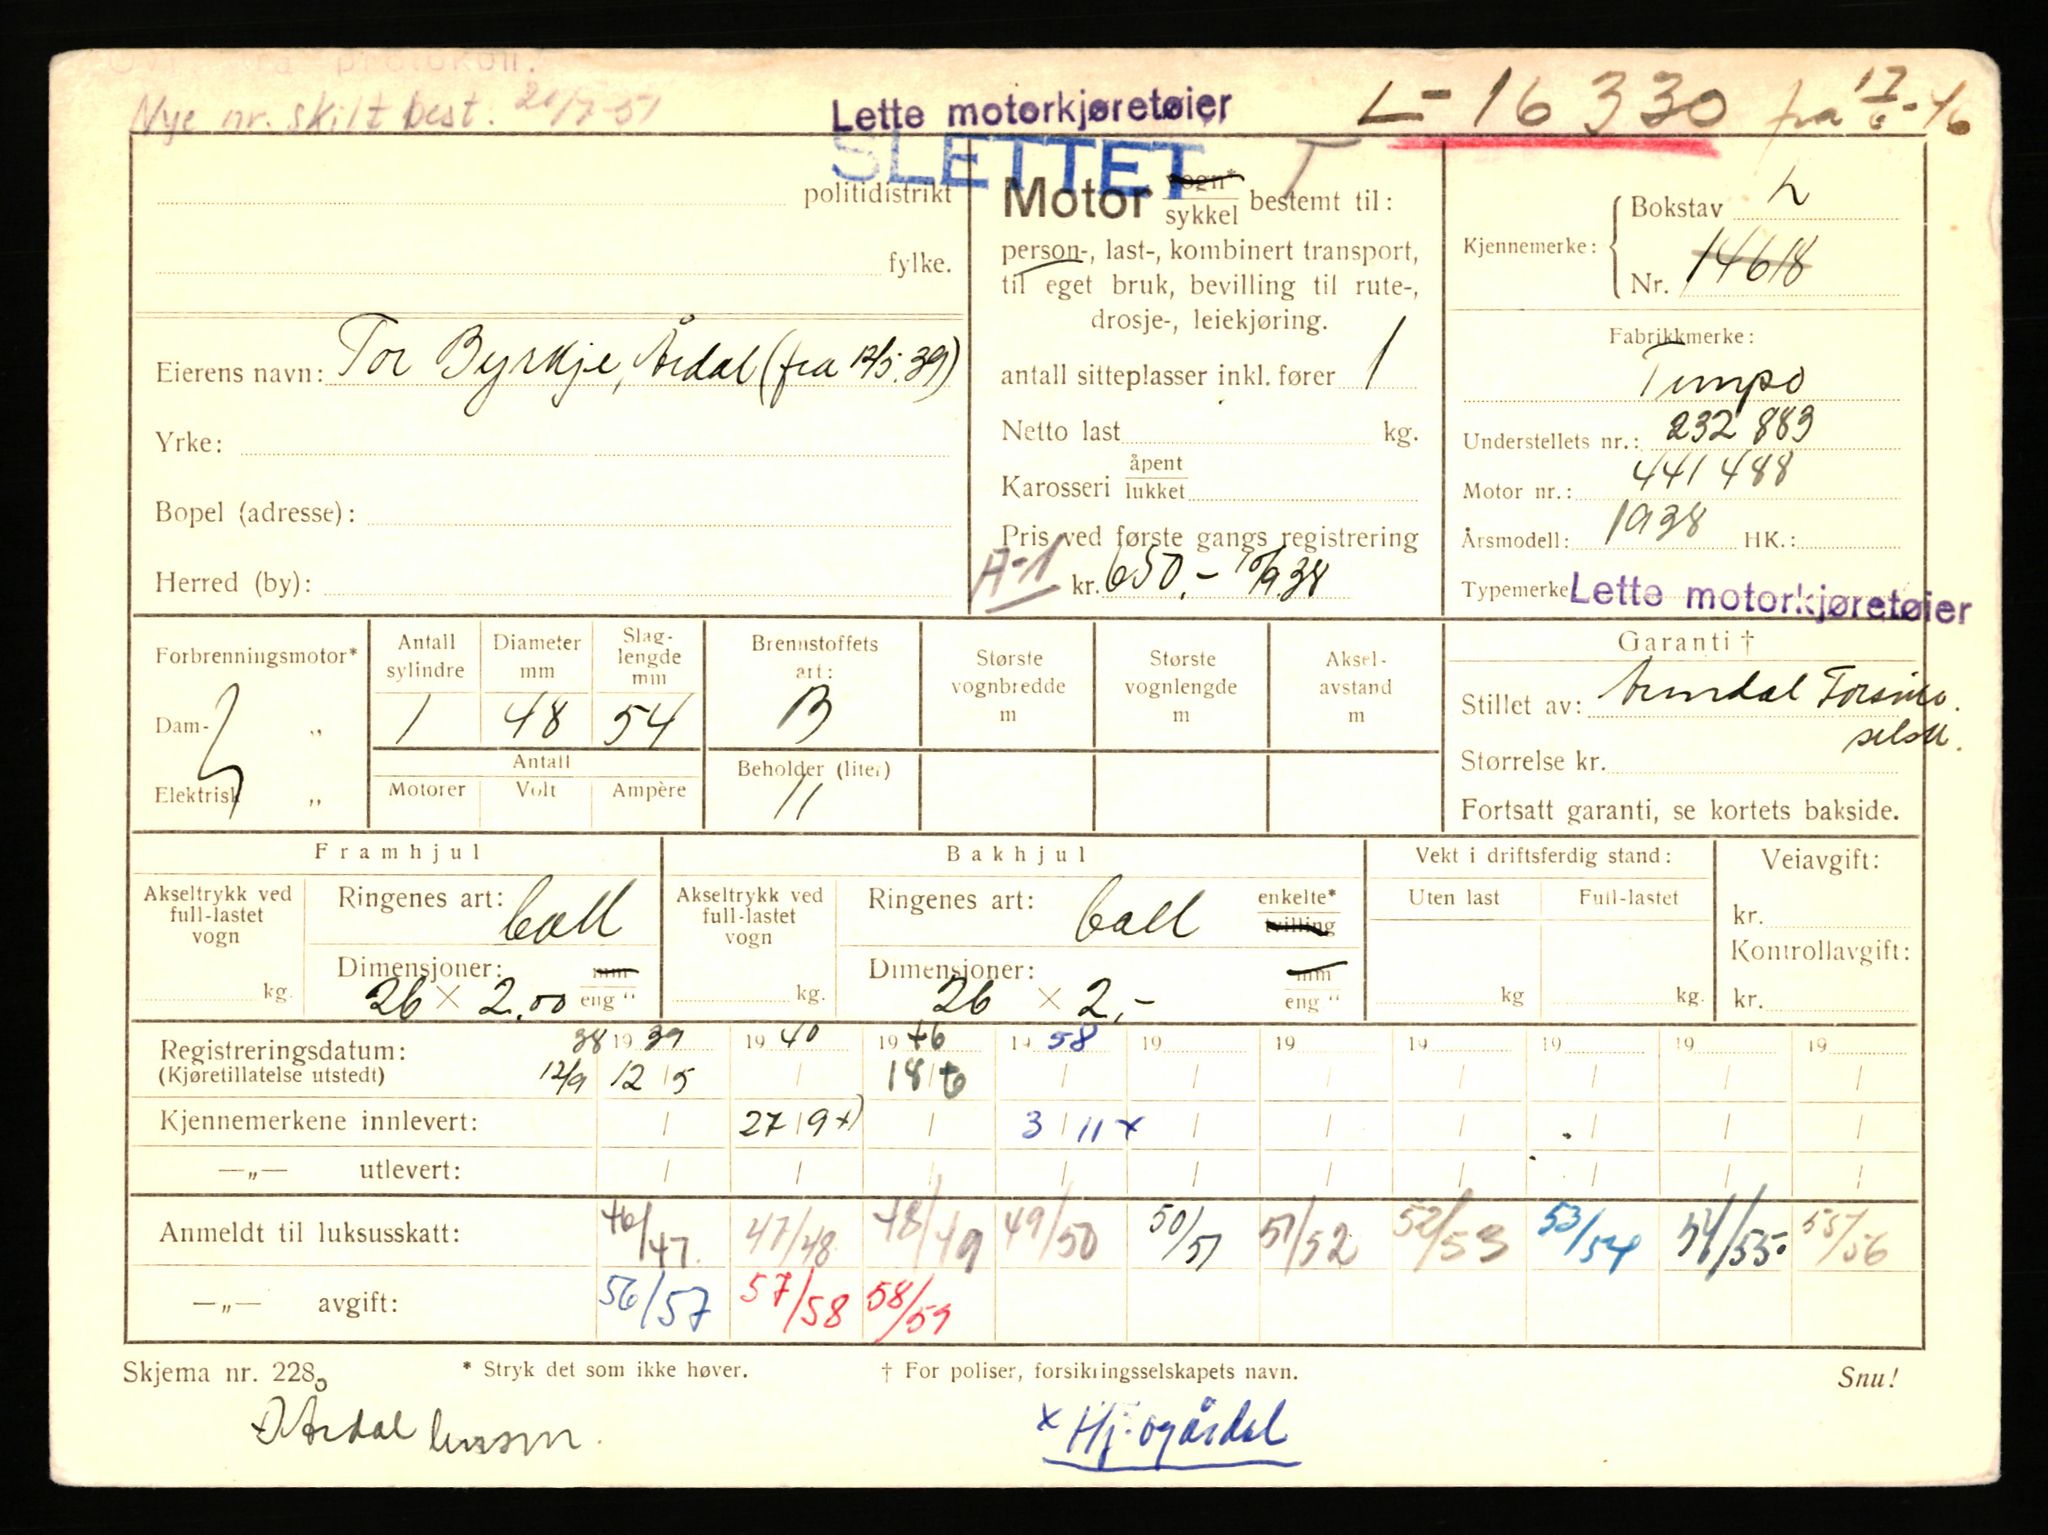 Nye nr. skilt best. 20/7-51
Lette motorkjøretøier
L-16330 fra 17/6-46
SLETTET
T
politidistrikt
fylke.
Eierens navn: Tor Byrkje, Årdal (fra 12/5.39)
Yrke:
Bopel (adresse):
Herred (by):
Motor vogn* sykkel bestemt til:
person-, last-, kombinert transport,
til eget bruk, bevilling til rute-,
drosje-, leiekjøring.
antall sitteplasser inkl. fører 1
Netto last kg.
Karosseri åpent lukket
Pris ved første gangs registrering
A-1 kr. 650.- 10/9.38
Kjennemerke: Bokstav L
Nr. 14618
Fabrikkmerke:
Tempo
Understellets nr.: 232 883
Motor nr.: 441488
Årsmodell: 1938 HK.:
Typemerke Lette motorkjøretøier
Forbrenningsmotor*
Dam- „
Elektrisk „
Antall sylindre 1
Diameter mm 48
Slaglengde mm 54
Antall
Motorer Volt Ampère
Brennstoffets art: B
Beholder (liter) 11
Største vognbredde m
Største vognlengde m
Akselavstand m
Garanti †
Stillet av: Arendal
Størrelse kr.
Fortsatt garanti, se kortets bakside.
Framhjul
Akseltrykk ved full-lastet vogn kg.
Ringenes art: Ball
Dimensjoner: 26 x 2.00 mm eng "
Bakhjul
Akseltrykk ved full-lastet vogn kg.
Ringenes art: Ball enkelte* tvilling
Dimensjoner: 26 x 2,- mm eng "
Vekt i driftsferdig stand:
Uten last kg Full-lastet kg.
Veiavgift:
kr.
Kontrollavgift:
kr.
Registreringsdatum: 38 1939 1940 1946 1958 19 19 19 19 19 19
(Kjøretillatelse utstedt) 12/9 12/5 / 18/6 / / / / / / /
Kjennemerkene innlevert: / 27/9 +) / 3/11 x / / / / / /
—„— utlevert: / / / / / / / / / /
Anmeldt til luksusskatt: 46/47. 47/48 48/49 49/50 50/51 51/52 52/53 53/54 54/55. 55/56
—„— avgift: 56/57 57/58 58/59
Skjema nr. 228.
* Stryk det som ikke høver.
† For poliser, forsikringsselskapets navn.
Snu!
Årdal
x Hj. og årdal